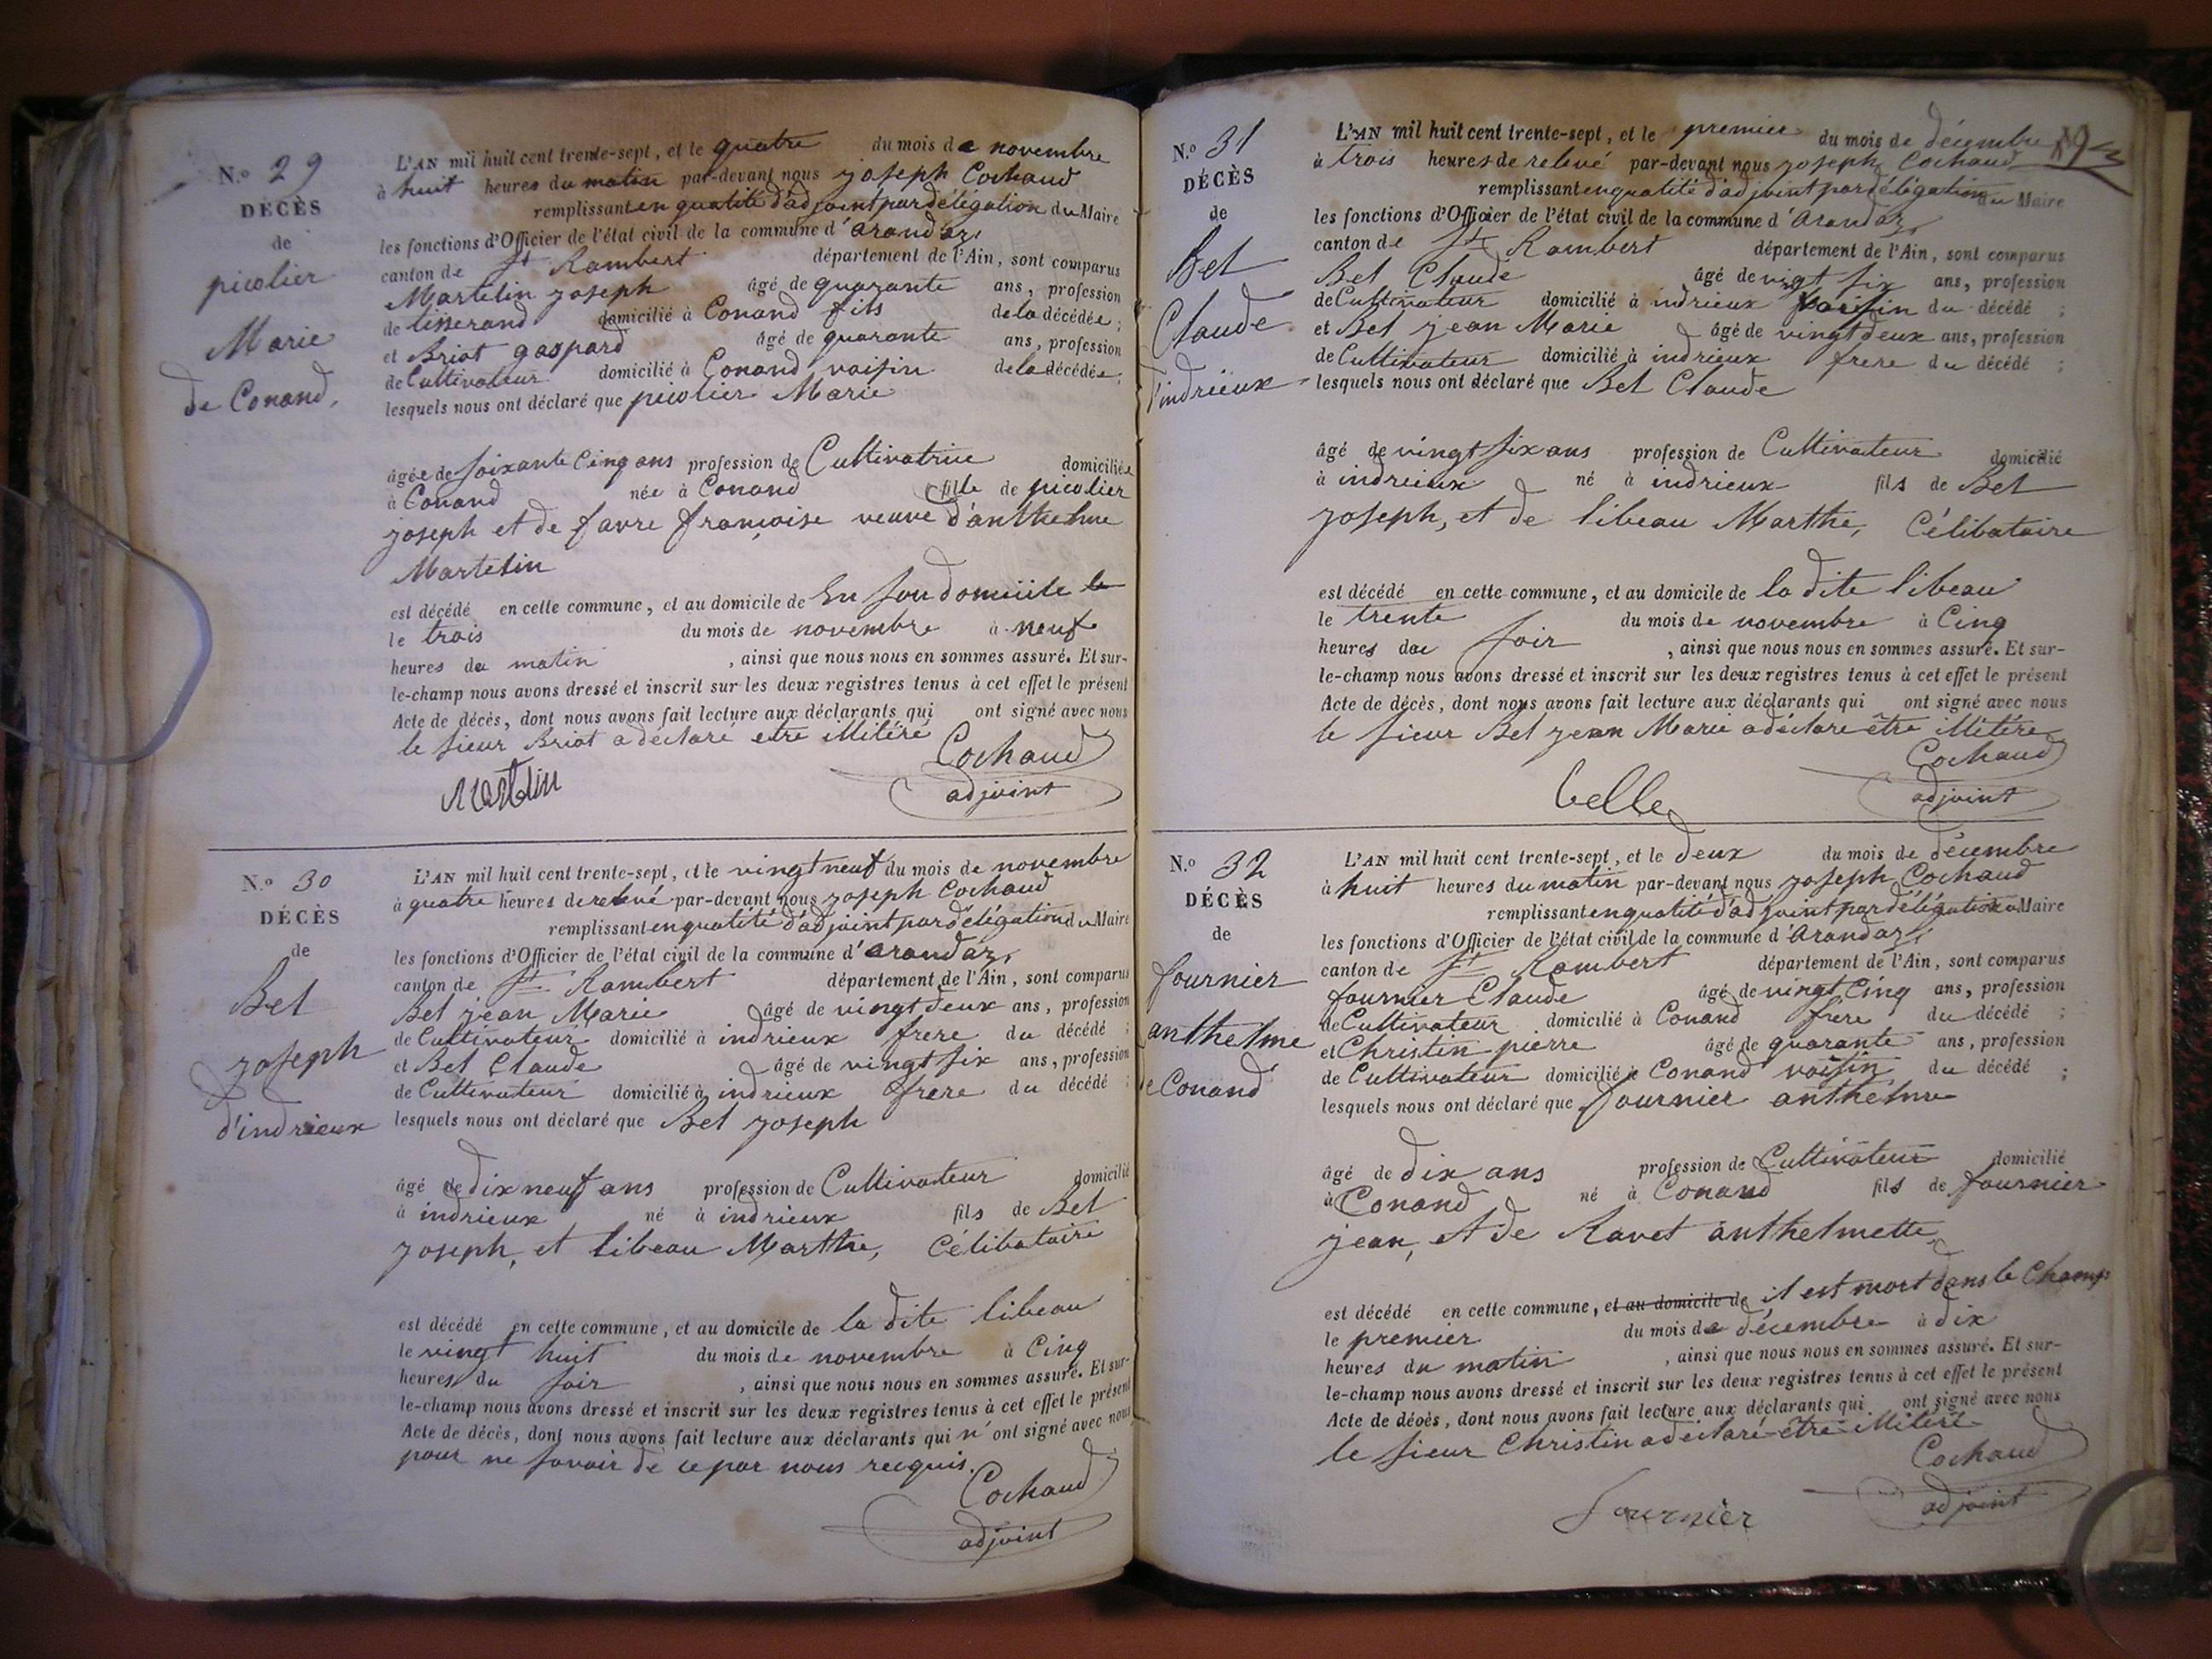 N.o 29
DÉCÈS
de
picolier
Marie
de Conand.
L'AN mil huit cent trente-sept, et le quatre du mois de novembre
à huit heures du matin par-devant nous joseph Cochaud
remplissant en qualité d'adjoint par délégation du Maire
les fonctions d'Officier de l'état civil de la commune d'arandaz,
canton de St Rambert département de l'Ain, sont comparus
Martelin joseph âgé de quarante ans, profession
de tisserand domicilié à Conand fils de la décédée;
et Briot gaspard âgé de quarante ans, profession
de Cultivateur domicilié à Conand voisin de la décédée;
lesquels nous ont déclaré que picolier Marie
âgée de soixante Cinq ans profession de Cultivatrice domiciliée
à Conand née à Conand fille de picolier
joseph et de favre françoise veuve d'anthelme
Martelin
est décédé en cette commune, et au domicile de En son domicile le
le trois du mois de novembre à neuf
heures du matin, ainsi que nous nous en sommes assuré. Et sur-
le-champ nous avons dressé et inscrit sur les deux registres tenus à cet effet le présent
Acte de décès, dont nous avons fait lecture aux déclarants qui ont signé avec nous
le sieur Briot a déclaré etre illiteré
Cochaud
adjoint
N.o 30
DÉCÈS
de
Bel
joseph
d'indrieux
L'AN mil huit cent trente-sept, et le vingt neuf du mois de novembre
à quatre heures de relevé par-devant nous joseph Cochaud
remplissant en qualité d'adjoint par délégation du Maire
les fonctions d'Officier de l'état civil de la commune d'arandaz,
canton de St Rambert département de l'Ain, sont comparus
Bel jean Marie âgé de vingt deux ans, profession
de Cultivateur domicilié à indrieux frere du décédé;
et Bel Claude âgé de vingt six ans, profession
de Cultivateur domicilié à indrieux frere du décédé;
lesquels nous ont déclaré que Bel joseph
âgé de dix neuf ans profession de Cultivateur domicilié
à indrieux né à indrieux fils de Bel
joseph, et libeau Marthe, Célibataire
est décédé en cette commune, et au domicile de la dite libeau
le vingt huit du mois de novembre à Cinq
heures du soir, ainsi que nous nous en sommes assuré. Et sur-
le-champ nous avons dressé et inscrit sur les deux registres tenus à cet effet le présent
Acte de décès, dont nous avons fait lecture aux déclarants qui n'ont signé avec nous
pour ne savoir de ce par nous recquis.
Cochaud
adjoint
N.o 31
DÉCÈS
de
Bel
Claude
d'indrieux
L'AN mil huit cent trente-sept, et le premier du mois de décembre
à trois heures de relevé par-devant nous joseph Cochaud
remplissant en qualité d'adjoint par délégation du Maire
les fonctions d'Officier de l'état civil de la commune d'arandaz,
canton de St Rambert département de l'Ain, sont comparus
Bel Claude âgé de vigt six ans, profession
de Cultivateur domicilié à indrieux voisin du décédé;
et Bel jean Marie âgé de vingt deux ans, profession
de Cultivateur domicilié à indrieux frere du décédé;
lesquels nous ont déclaré que Bel Claude
âgé de vingt six ans profession de Cultivateur domicilié
à indrieux né à indrieux fils de Bel
joseph, et de libeau Marthe, Célibataire
est décédé en cette commune, et au domicile de la dite libeau
le trente du mois de novembre à Cinq
heures du soir, ainsi que nous nous en sommes assuré. Et sur-
le-champ nous avons dressé et inscrit sur les deux registres tenus à cet effet le présent
Acte de décès, dont nous avons fait lecture aux déclarants qui ont signé avec nous
le sieur Bel jean Marie a déclaré être illitéré
Cochaud
belle adjoint
N.o 32
DÉCÈS
de
fournier
anthelme
de Conand
L'AN mil huit cent trente-sept, et le deux du mois de décembre
à huit heures du matin par-devant nous joseph Cochaud
remplissant en qualité d'adjoint par délégation du Maire
les fonctions d'Officier de l'état civil de la commune d'arandaz,
canton de St Rambert département de l'Ain, sont comparus
fournier Claude âgé de vingt Cinq ans, profession
de Cultivateur domicilié à Conand frere du décédé;
et Christin pierre âgé de quarante ans, profession
de Cultivateur domicilié à Conand voisin du décédé;
lesquels nous ont déclaré que fournier anthelme
âgé de dix ans profession de Cultivateur domicilié
à Conand né à Conand fils de fournier
jean, et de Ravet anthelmette
est décédé en cette commune, et au domicile de il est mort dans le Champ
le premier du mois de décembre à dix
heures du matin, ainsi que nous nous en sommes assuré. Et sur-
le-champ nous avons dressé et inscrit sur les deux registres tenus à cet effet le présent
Acte de décès, dont nous avons fait lecture aux déclarants qui ont signé avec nous
le sieur Christin a déclaré être illiteré
Cochaud
fournier adjoint